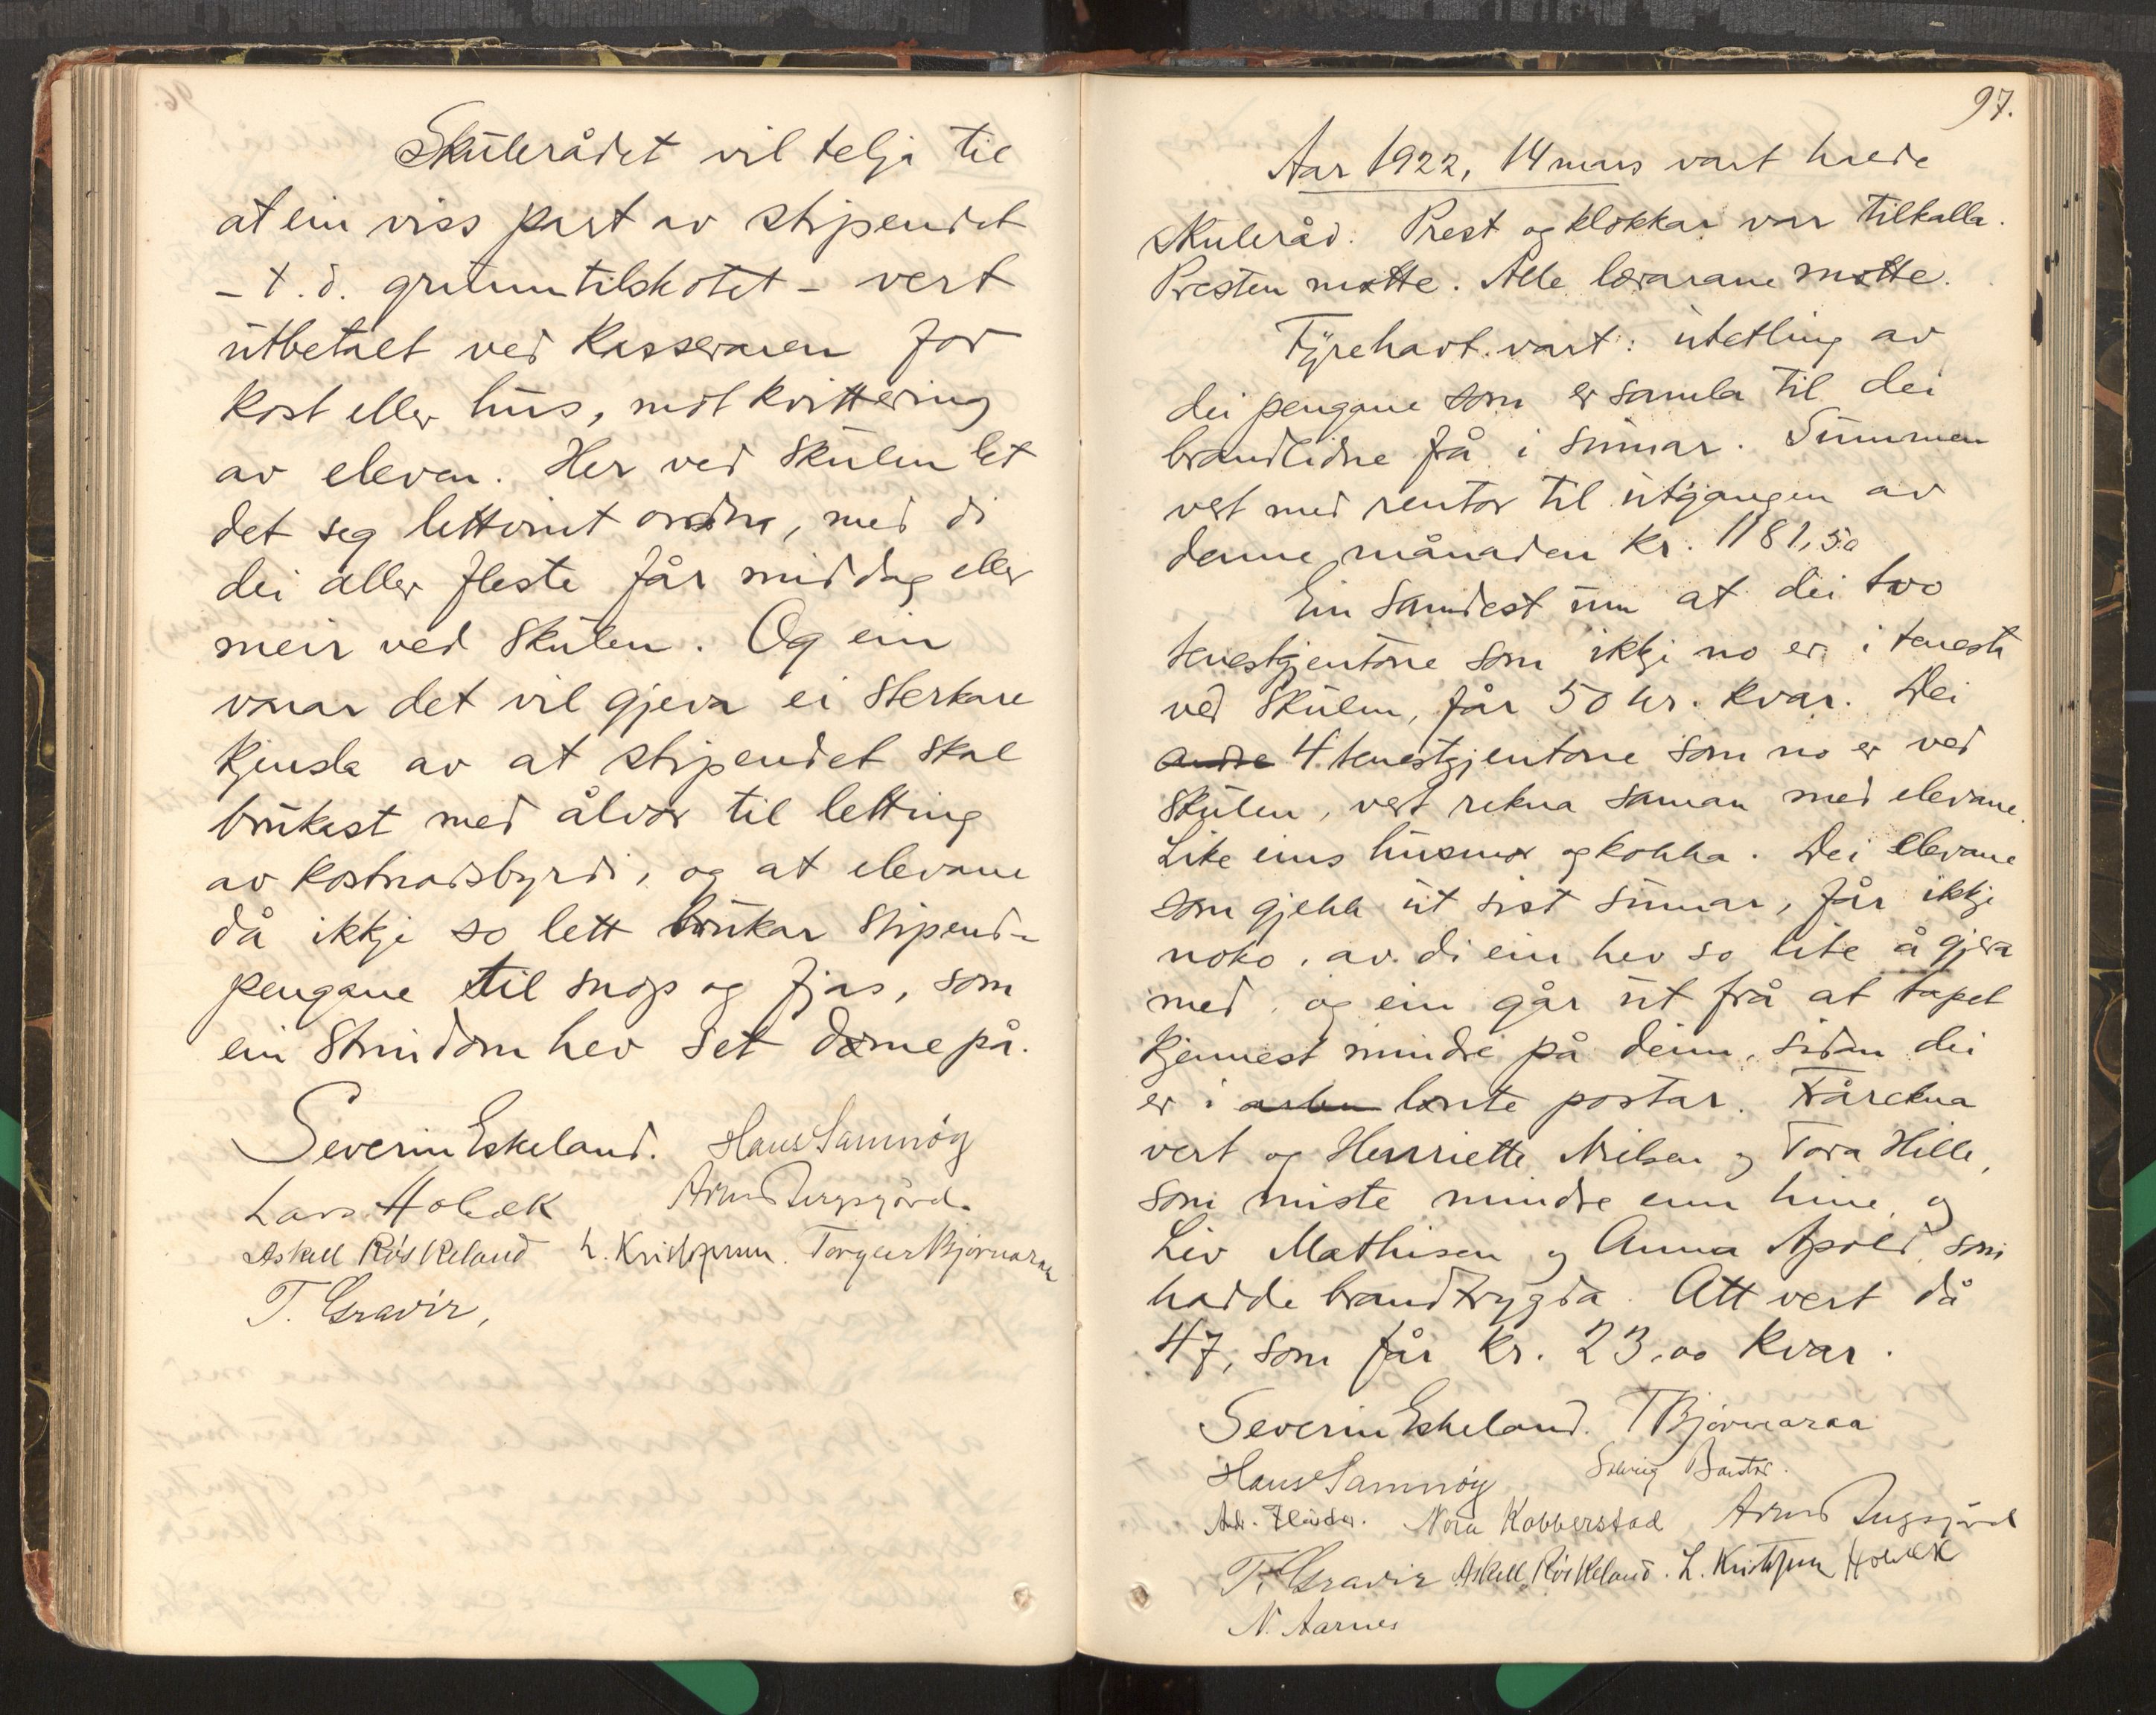 Skulerådet vil telja til
at ein viss part av stipendet
- t. d. grunntilskotet - vert
utbetalt ved kasseraren for
kost eller hus, mot kvittering
av eleven. Her ved skulen let
det seg lettvint ordna, med di
dei aller fleste får middag eller
meir ved skulen. Og ein
vonar det vil gjeva ei sterkare
kjensla av at stipendet skal
brukast med ålvor til letting
av kostnadsbyrdi, og at elevane
då ikkje so lett brukar stipend-
pengane til snop og fjas, som
ein stundom hev set døme på.
Severin Eskeland. Hans Samnøy
Lars Holbæk Arne Dugsgård.
Askell Røskeland L. Kristofersen. Torgeir Bjørnaraa
T. Gravir,
97.
Aar 1922, 14 mars vart halde
skuleråd. Prest og klokkar var tilkalla.
Presten møtte. Alle lærarane møtte.
Fyrehavt vart: utetling av
dei pengane som er samla til dei
brandlidne frå i sumar. Summen
vert med rentor til utgangen av
denne månaden kr. 1181,50
Ein samdest um at dei two
tenestgjentone som ikkje no er i tenest
ved skulen, får 50 kr. kvar. Dei
andre 4 tenestgjentone som no er ved
skulen, vert rekna saman med elevane.
Like eins husmor og kokka. Dei elevane
som gjekk ut sist sumar, får ikkje
noko, av di ein hev so lite å gjera
med, og ein går ut frå at tapet
kjennest mindre på deim, sidan dei
er i lønte postar. Fårekna
vert og Henriette Nielsen og Tora Hille,
som miste mindre enn hine, og
Liv Mathisen og Anna Apold, som
hadde brandtrygda. Att vert då
47, som får kr. 23,00 kvar.
Severin Eskeland. T Bjørnaraa
Hans Samnøy Solveig
Nora Kobberstad Arne Dugsgård
T. Gravir Askell Røskeland. L. Kristofersen Holbæk
N. Aarnes